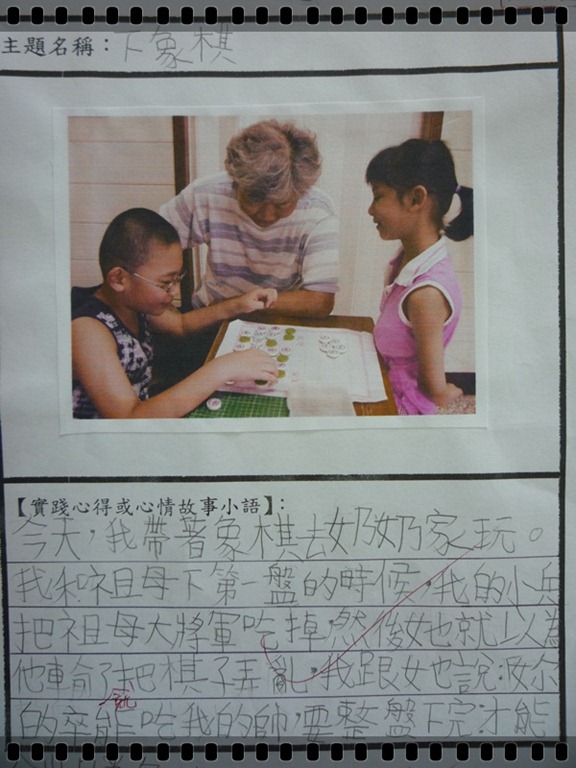 主題名稱：下象棋
【實踐心得或心情故事小語】：
今天，我帶著象棋去奶奶家玩。
我和祖母下第一盤的時候，我的小兵
把祖母大將軍吃掉，然後她就以為
他輸了把棋子弄亂，我跟她說：你
的卒能吃我的帥，要整盤下完，才能
就